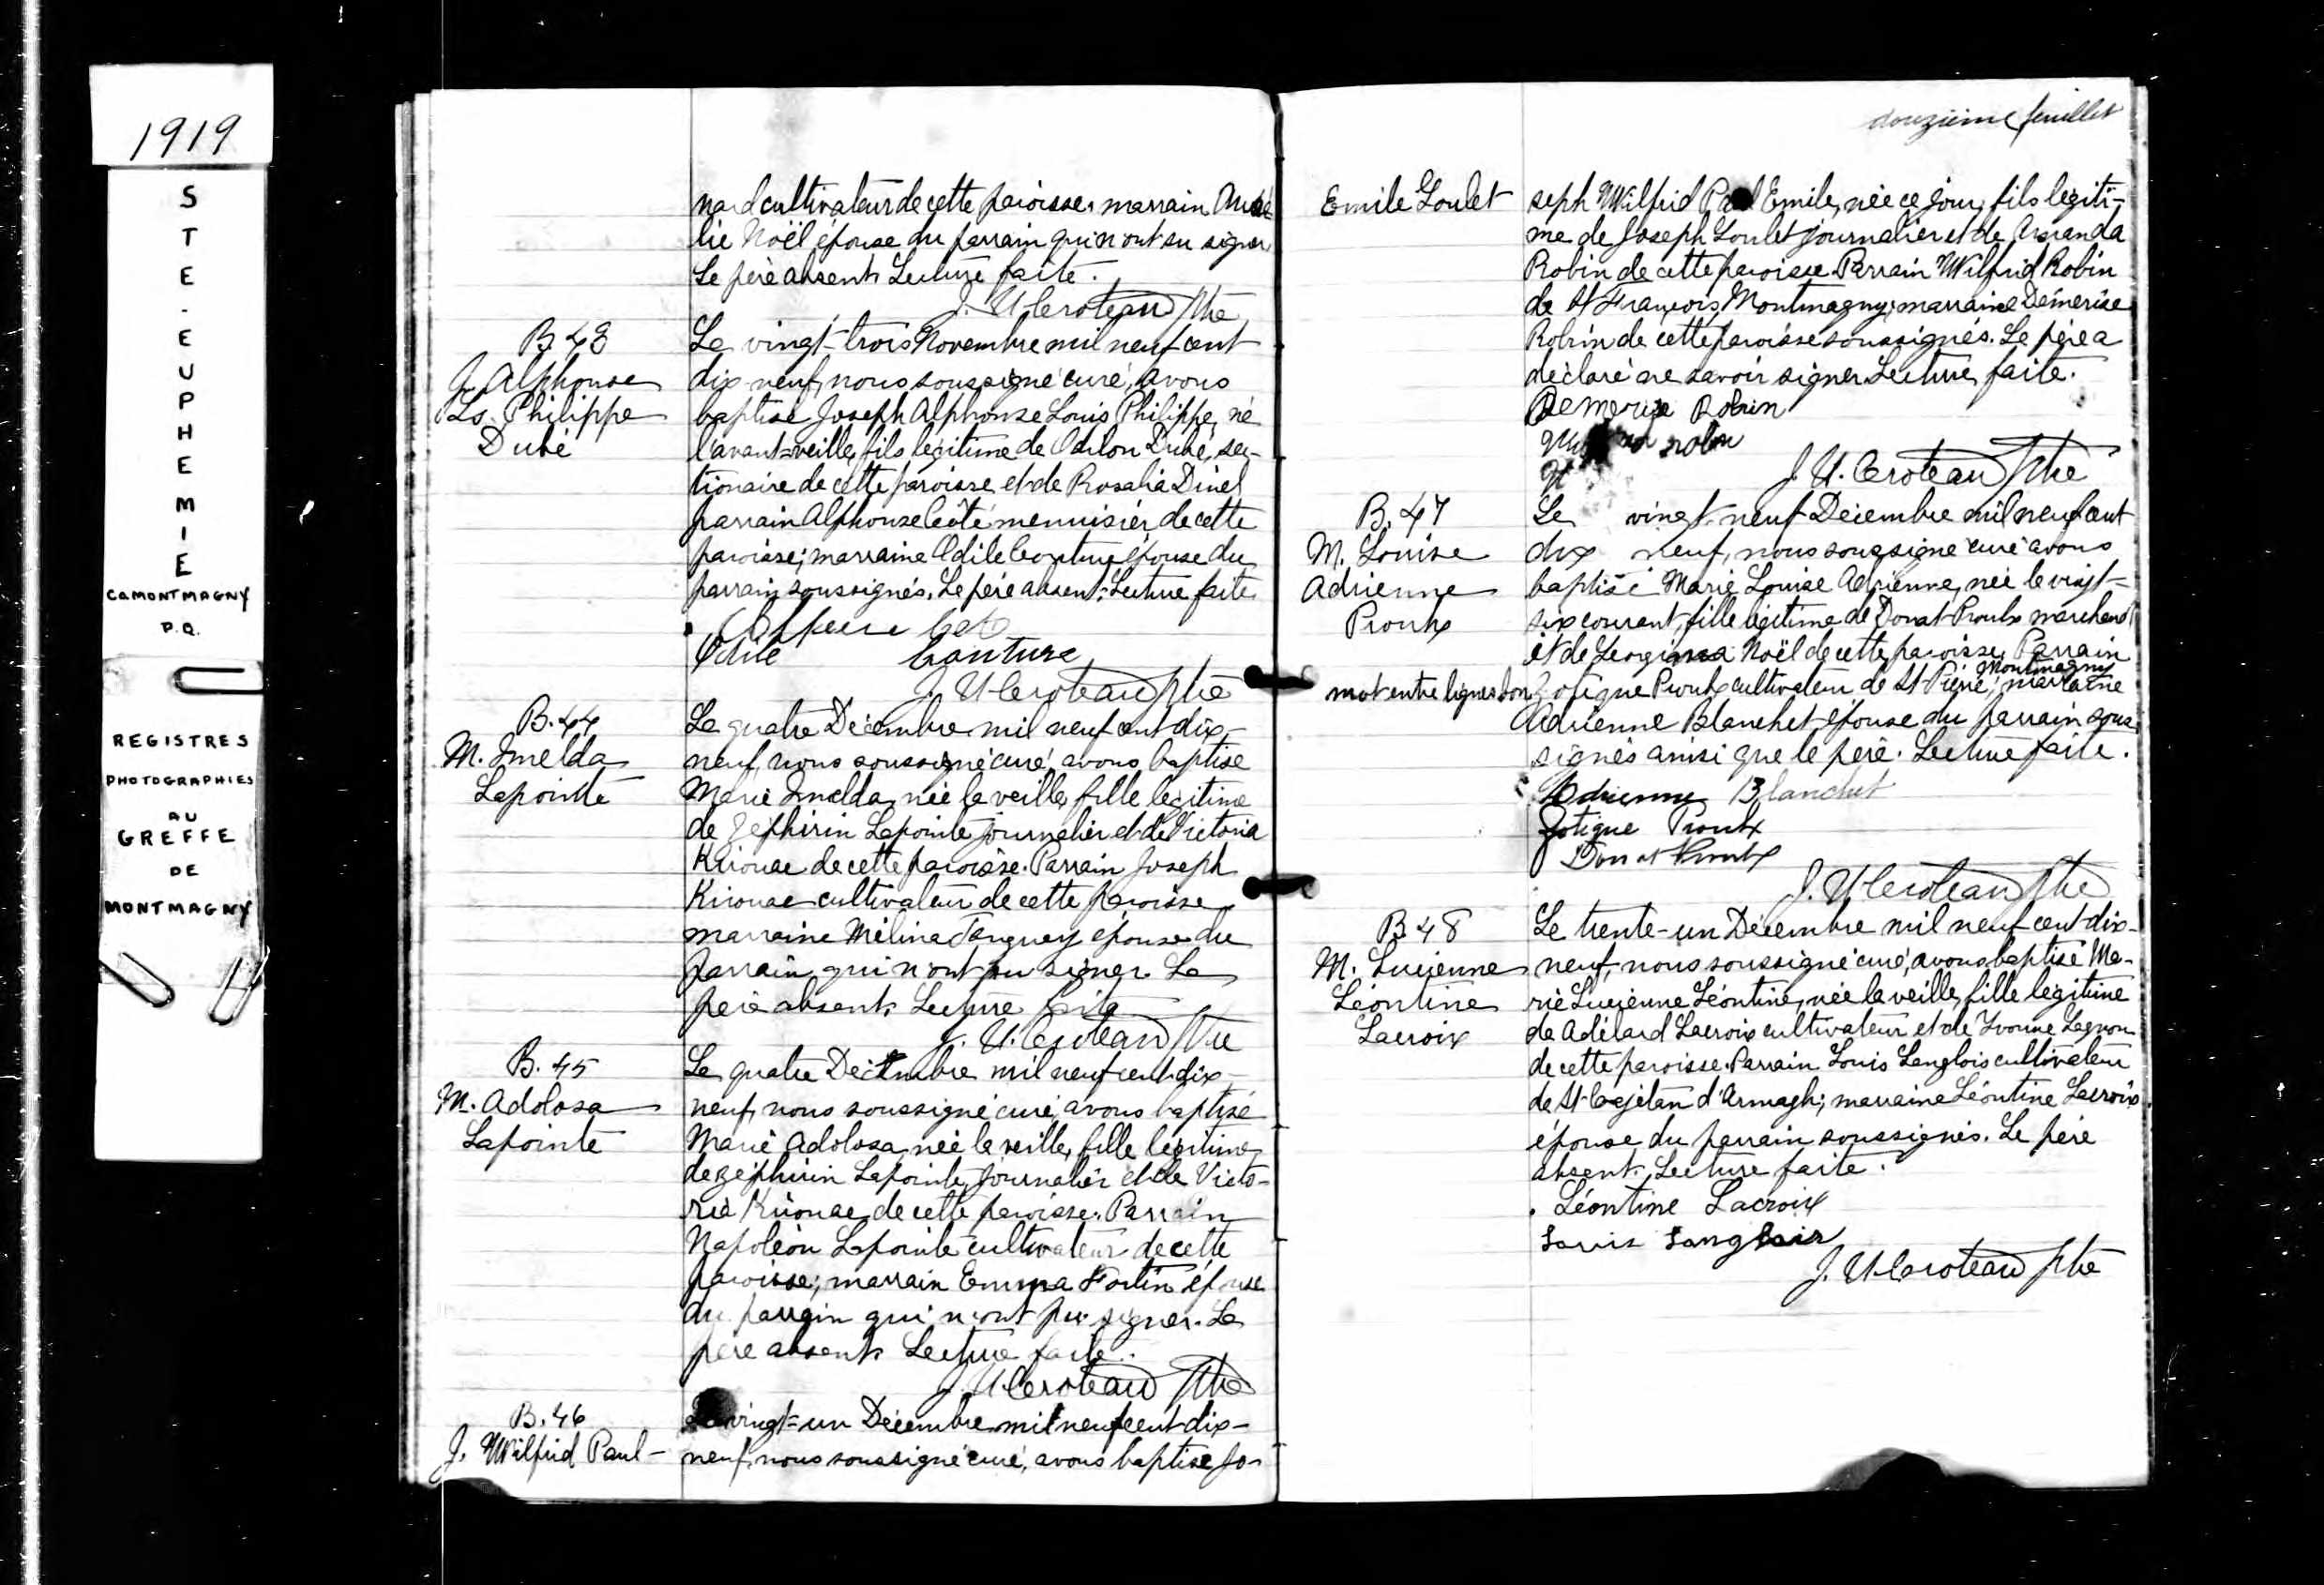 1919
STE-EUPHEMIE
Co MONTMAGNY
P.Q.
REGISTRES
PHOTOGRAPHIES
AU
GREFFE
DE
MONTMAGNY
nard cultivateur de cette paroisse, marrain
lie Noël épouse du parrain qui n'ont su signer
Le père absent. Lecture faite.
J. U. Croteau Ptre
B. 43
J. Alphonse
Ls. Philippe
Dubé
Le vingt-trois Novembre mil neuf cent
dix-neuf, nous soussigné curé, avons
baptisé Joseph Alphonse Louis Philippe, né
l'avant-veille, fils légitime de Odilon Dubé, sec-
tionaire de cette paroisse et de Rosalia Dinel
parrain Alphonse Côté menuisier de cette
paroisse; marraine Odile Couture épouse du
parrain soussignés. Le père absent. Lecture faite
Odile Couture
J. U. Croteau Ptre
B. 44
M. Imelda
Lapointe
Le quatre Décembre mil neuf cent dix-
neuf, nous soussigné curé, avons baptisé
Marie Imelda, née la veille, fille légitime
de Zéphirin Lapointe journalier et de Victoria
Kirouac de cette paroisse. Parrain Joseph
Kirouac cultivateur de cette paroisse
marraine Mélina Tanguay épouse du
parrain qui n'ont pu signer. Le
père absent. Lecture faite
J. U. Croteau Ptre
B. 45
M. Adolosa
Lapointe
Le quatre Décembre mil neuf cent dix-
neuf, nous soussigné curé, avons baptisé
Marie Adolosa, née la veille, fille légitime
de Zéphirin Lapointe, journalier et de Victo-
ria Kirouac, de cette paroisse. Parrain
Napoléon Lapointe cultivateur de cette
paroisse; marrain Emma Fortin épouse
du parrain qui n'ont pu signer. Le
père absent. Lecture faite.
J. U. Croteau Ptre
B. 46
J. Wilfrid Paul-
vingt-un Décembre mil neuf cent dix-
neuf, nous soussigné curé, avons baptisé Jo-
douzième feuillet
Emile Goulet
seph Wilfrid Paul Emile, née ce jour, fils légiti-
me de Joseph Goulet journalier et de Amanda
Robin de cette paroisse. Parrain Wilfrid Robin
de St François, Montmagny; marraine Démerise
Robin de cette paroisse soussignés. Le père a
déclaré ne savoir signer. Lecture faite.
Demerise Robin
robin
J. U. Croteau Ptre
B. 47
M. Louise
Adrienne
Proulx
Le vingt-neuf Décembre mil neuf cent
dix neuf, nous soussigné curé avons
baptisé Marie Louise Adrienne, née le vingt-
six courant, fille légitime de Donat Proulx marchand
et de Georgina Noël de cette paroisse. Parrain
Montmagny
mot entre lignes bon
Zotique Proulx cultivateur de St-Pierre, marraine
Adrienne Blanchet épouse du parrain sous-
signés ainsi que le père. Lecture faite.
Adrienne Blanchet
Zotique Proulx
Donat Proulx
J. U. Croteau Ptre
B. 48
M. Lucienne
Léontine
Lacroix
Le trente-un Décembre mil neuf cent dix-
neuf, nous soussigné curé, avons baptisé Ma-
rie Lucienne Léontine, née la veille, fille légitime
de Adélard Lacroix cultivateur et de Yvonne Gagnon
de cette paroisse. Parrain Louis Langlois cultivateur
de St-Cajetan d'Armagh; marraine Léontine Lacroix
épouse du parrain soussignés. Le père
absent. Lecture faite.
Léontine Lacroix
Louis Langlois
J. U. Croteau Ptre